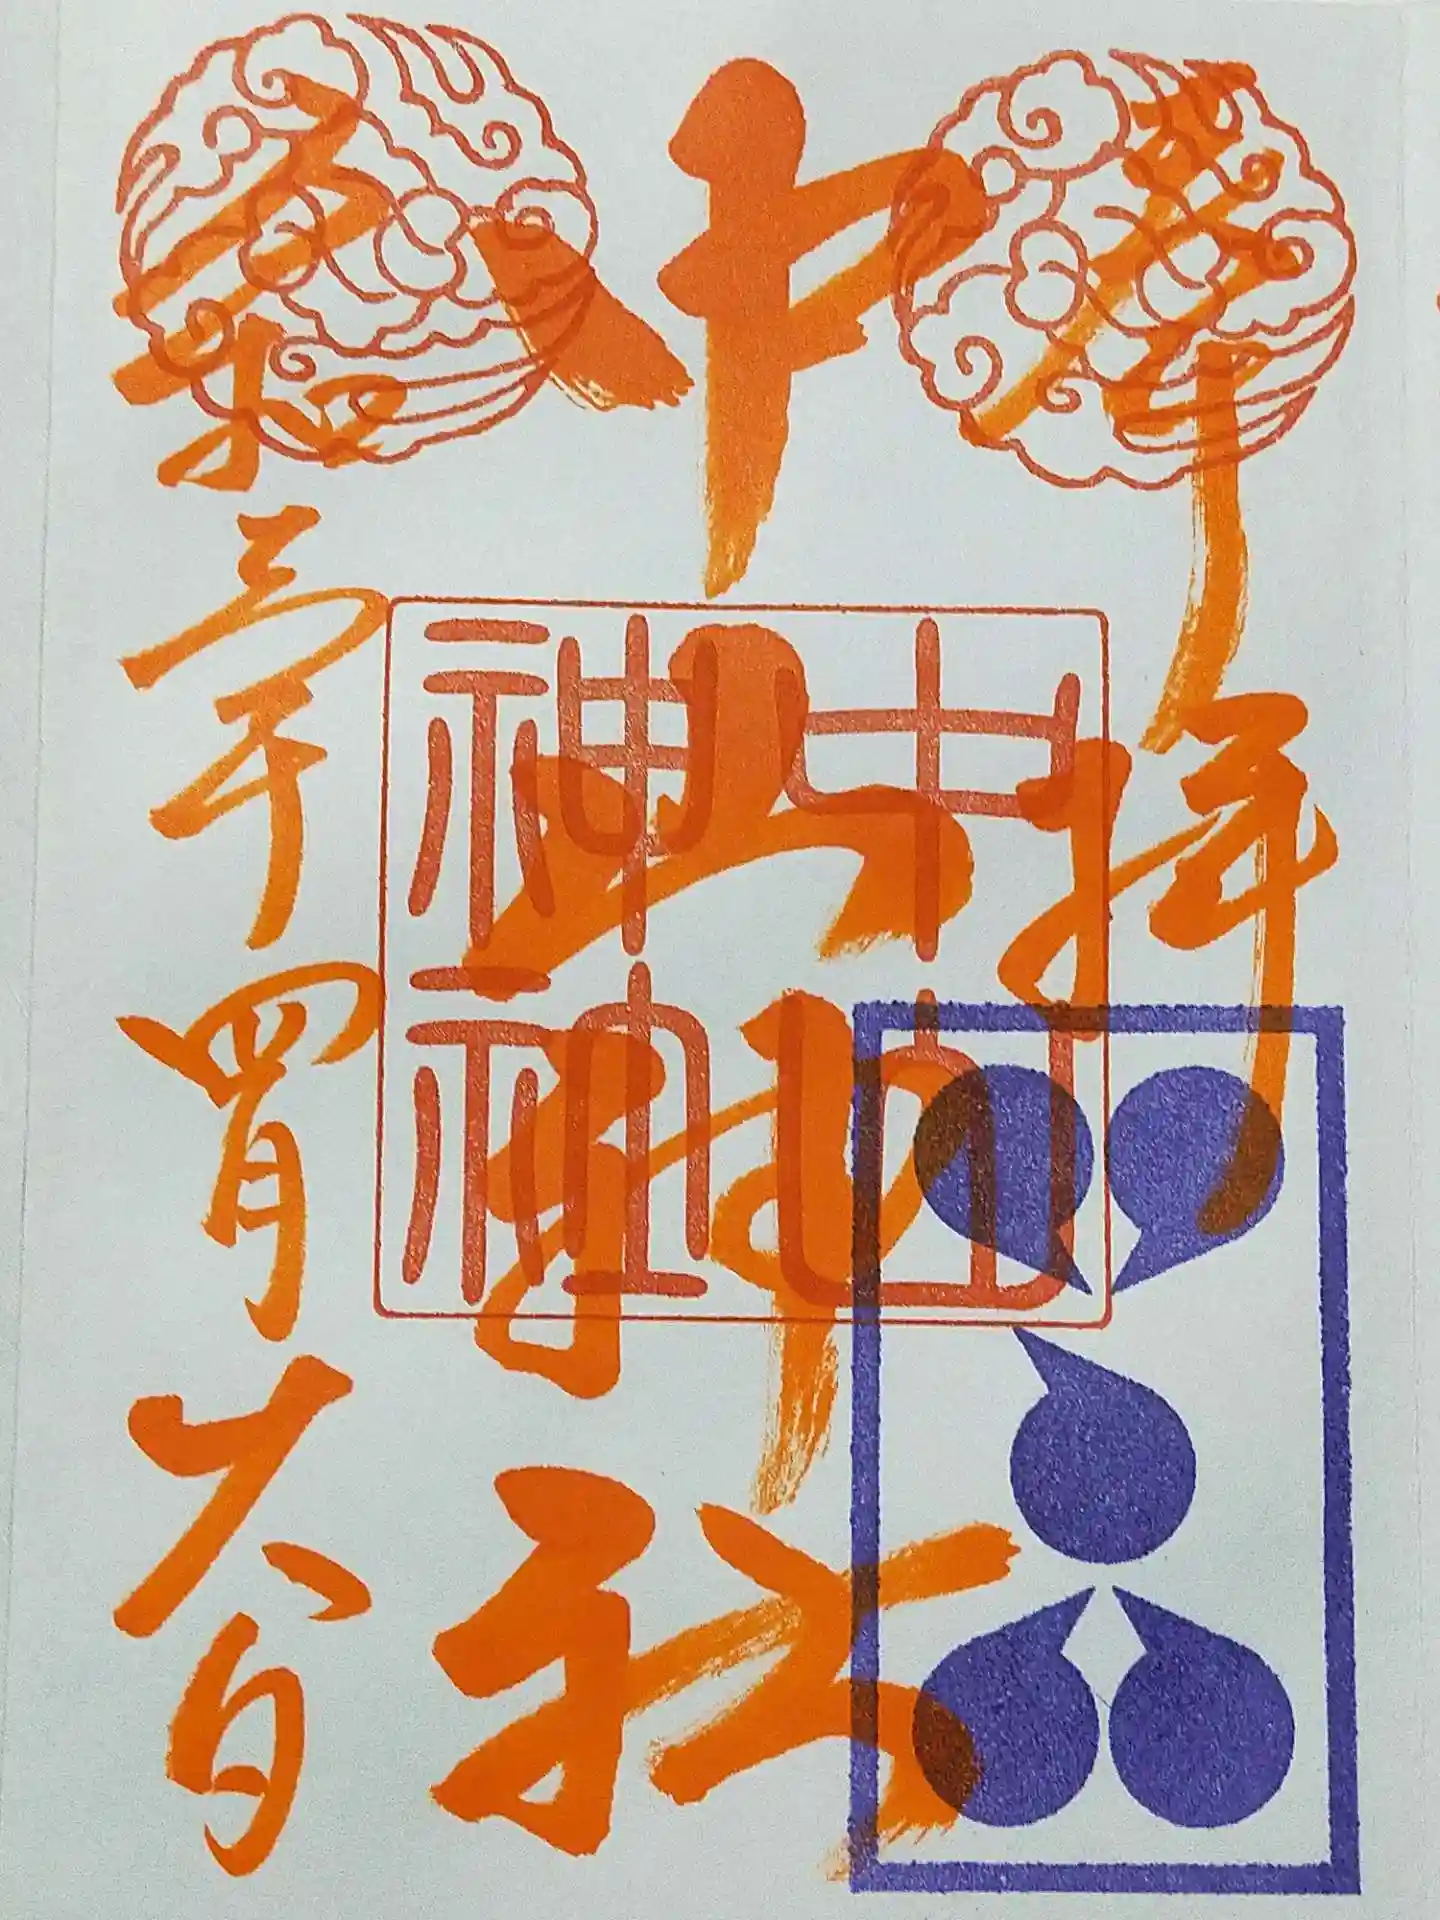 奉拝
中山神社
令和三年四月六日
中山
神社